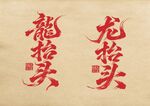 龍抬头
龙抬头